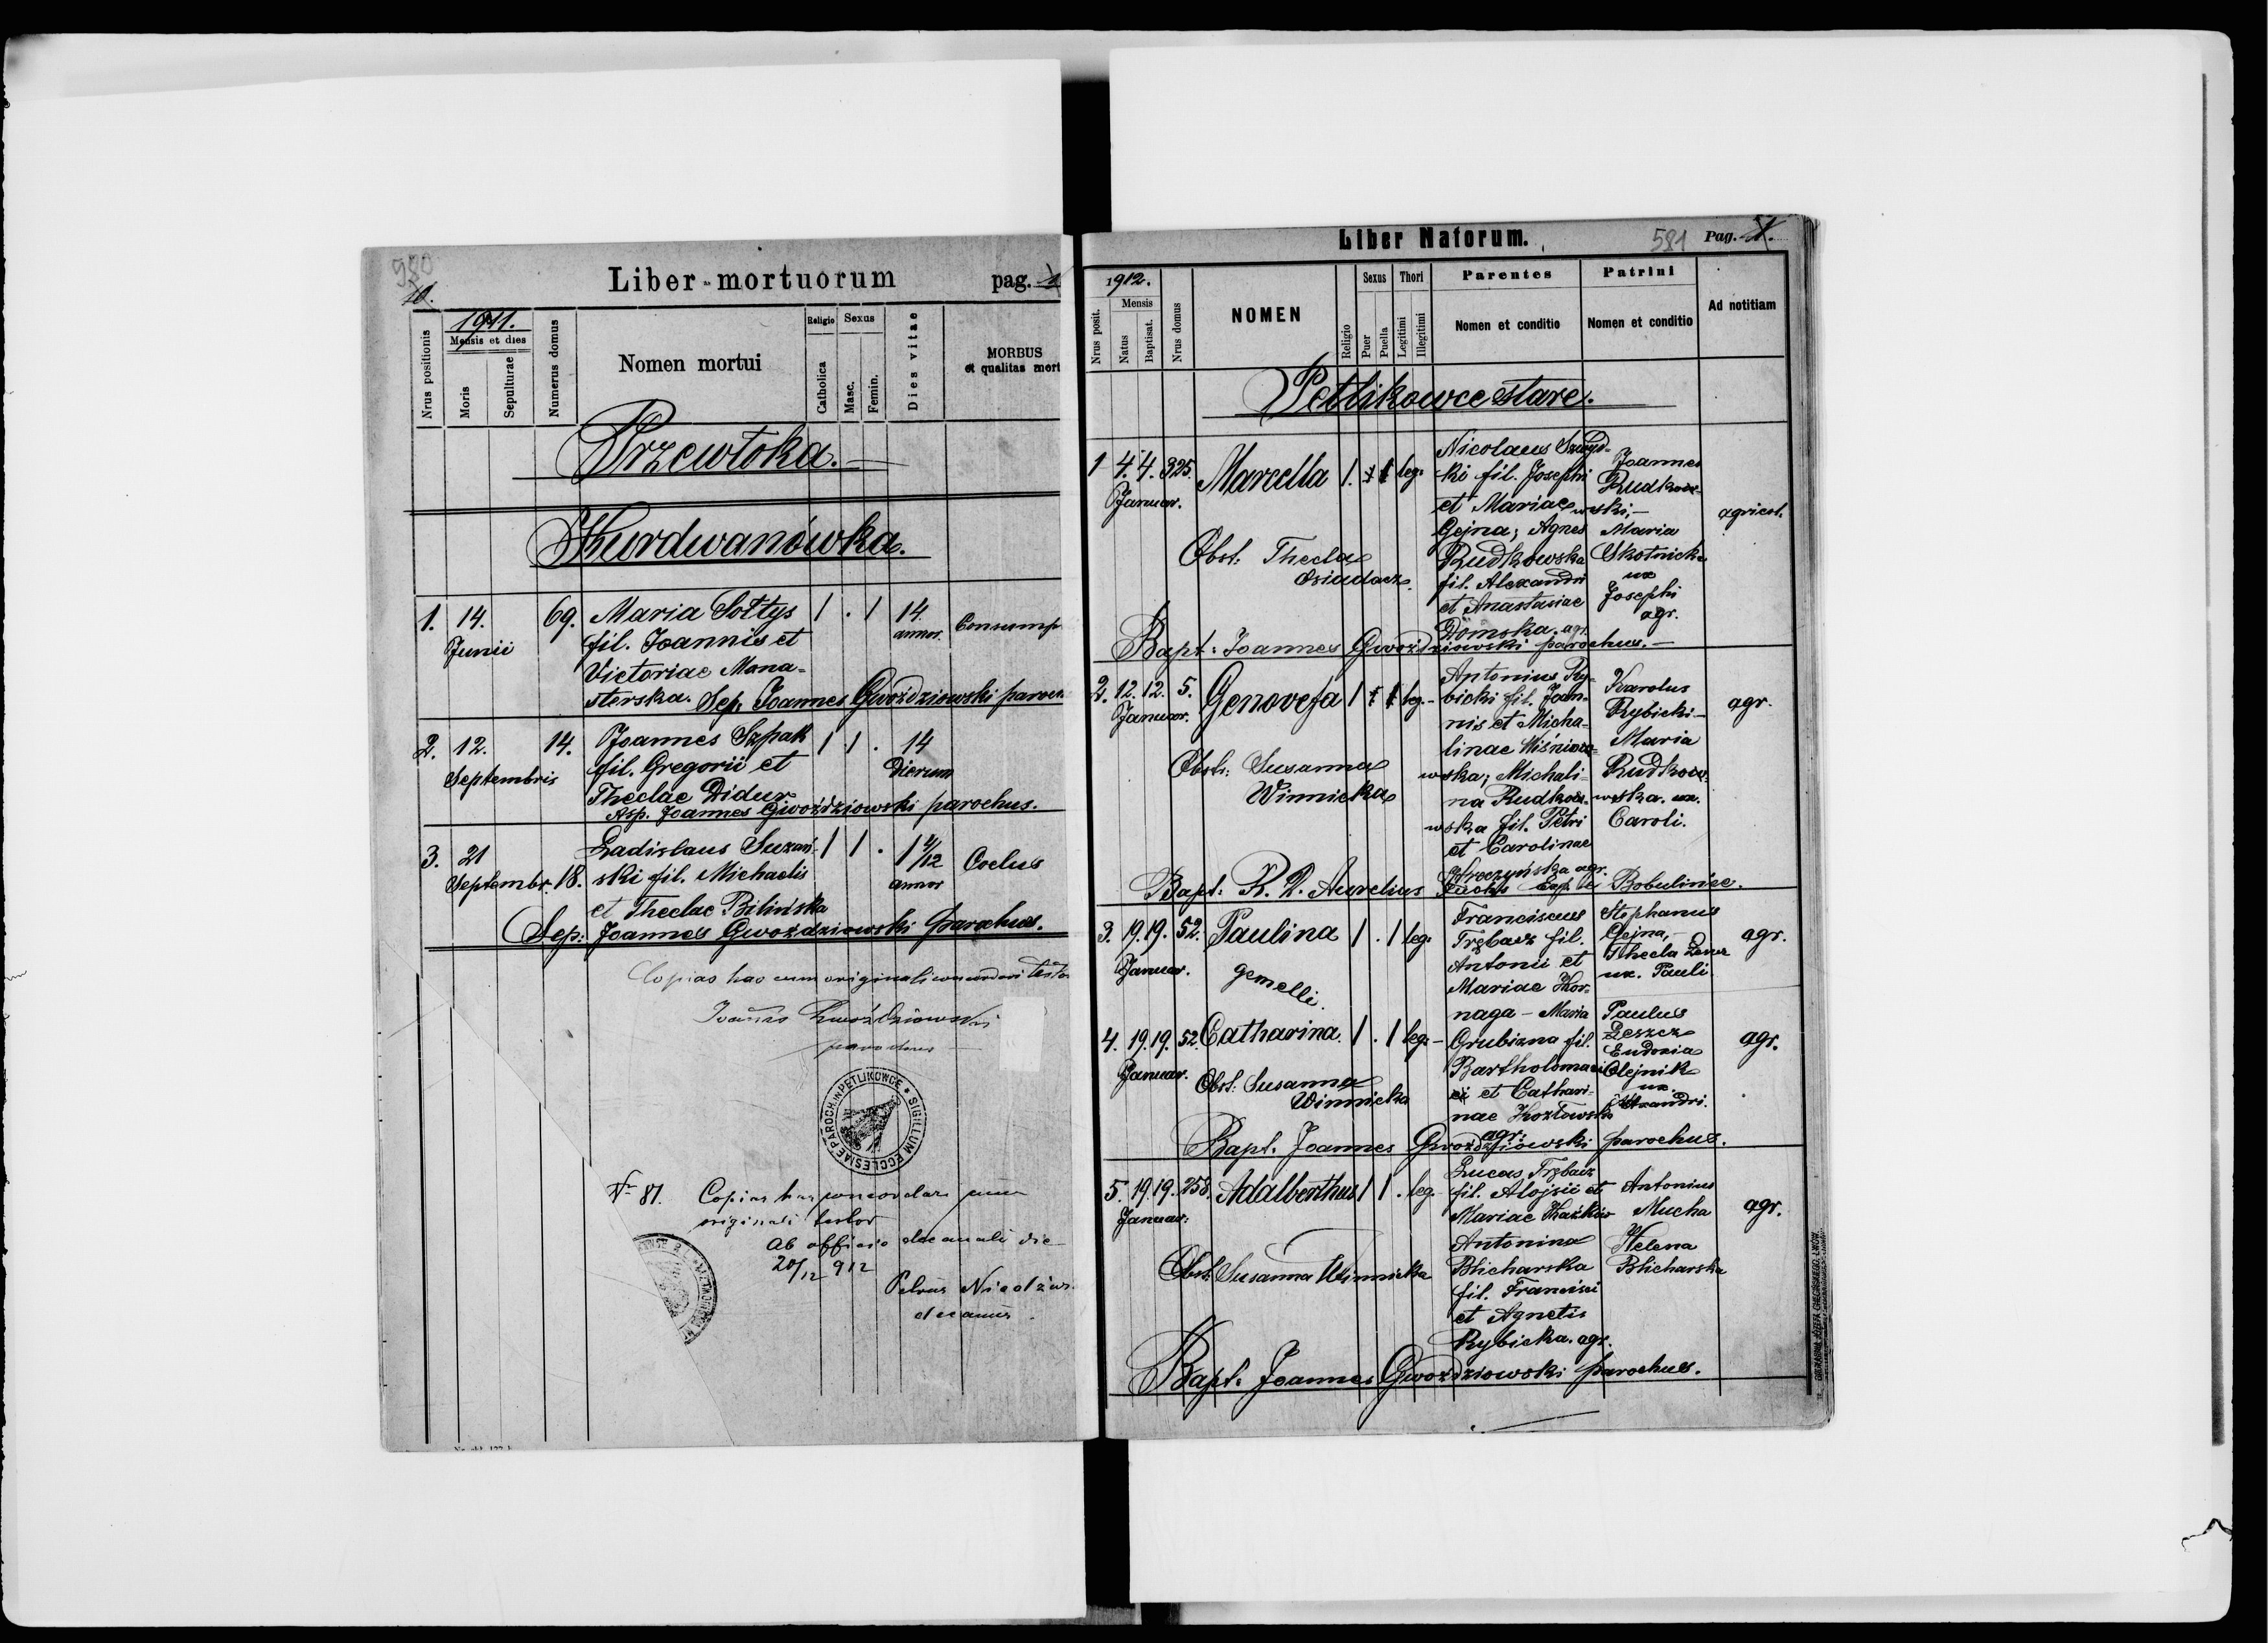 980
10.
Liber mortuorum pag.
Nrus positionis
1911.
Mensis et dies
Moris
Sepulturae
Numerus domus
Nomen mortui
Religio
Catholica
Sexus
Masc.
Femin.
Dies vitae
MORBUS
et qualitas mort
Przewłoka.
Kurdwanówka.
1. 14. 69. Maria Sołtys 1 . 1 14. Consump
Junii fil. Joannis et annor.
Victoriae Mona-
sterska. Sep. Joannes Gwoździowski paroch
2. 12. 14. Joannes Szpak 1 1 . 14
Septembris fil. Gregorii et Dierum
Theclae Didur
Joannes Gwoździowski parochus.
3. 21 Ladislaus Suzań- 1 1 . 1 4/12
Septembr. 18. ski fil. Michaelis annor
et Theclae Bilińska
Sep: Joannes Gwoździowski parochus.
Copias has cum originali concordari testor
Joannes Gwoździowski
parochus
SIGILLUM ECCLESIAE PAROCH. IN PETLIKOWCE
Nr 81. Copias has concordare cum
originali testor
Ab officio decanali die
20/12 912
Petrus
decanus
Liber Natorum. 581 Pag.
Nrus posit.
1912.
Mensis
Natus
Baptisat.
Nrus domus
NOMEN
Religio
Sexus
Puer
Puella
Thori
Legitimi
Illegitimi
Parentes
Nomen et conditio
Patrini
Nomen et conditio
Ad notitiam
Petlikowce stare.
1 4. 4. 325. Marcella 1. 1 leg.
Januar.
Nicolaus
ki fil. Josephi
et Mariae
Gejna; Agnes
Rudkowska
fil. Alexandri
et Anastasiae
Domska. agr.
Joannes
Rudkow-
wski,-
Maria
Skotnicka
ux
Josephi
agr.
agricol.
Obst: Thecla
Osiadacz
Bapt: Joannes Gwoździowski parochus.-
2. 12. 12. 5. Genovefa 1 1 leg.-
Januar.
Antonius Ry-
bicki fil. Joan-
nis et Micha-
linae Wiśniow-
wska; Michali-
na Rudkow-
wska fil. Petri
et Carolinae
agr.
Karolus
Rybicki-
Maria
Rudkow-
wska. ux.
Caroli.
agr.
Obst: Susanna
Winnicka
Bapt: R. D. Aurelius Bobulińce.
3. 19. 19. 52. Paulina 1 . 1 leg.
Januar.
gemelli
Franciscus
Trębacz fil.
Antonii et
Mariae Kor-
naga - Maria
Stephanus
Gejna,-
Thecla
ux. Pauli
agr.
4. 19. 19. 52. Catharina. 1 . 1 leg.-
Januar.
Grubizna fil.
Bartholomaei
et Cathari-
nae Kozłowska
agr.
Paulus
Leszcz
Eudoxia
Olejnik
ux.
Alexandri.
agr.
Obst: Susanna
Winnicka
Bapt. Joannes Gwoździowski parochus.
5. 19. 19. 258. Adalberthus 1 1 . leg.-
Januar:
Lucas Trębacz
fil. Alojsii et
Mariae
Antonina
Blicharska
fil. Francisci
et Agnetis
Rybicka. agr.
Antonius
Mucha
Helena
Blicharska
agr.
Obst: Susanna Winnicka
Bapt. Joannes Gwoździowski parochus.